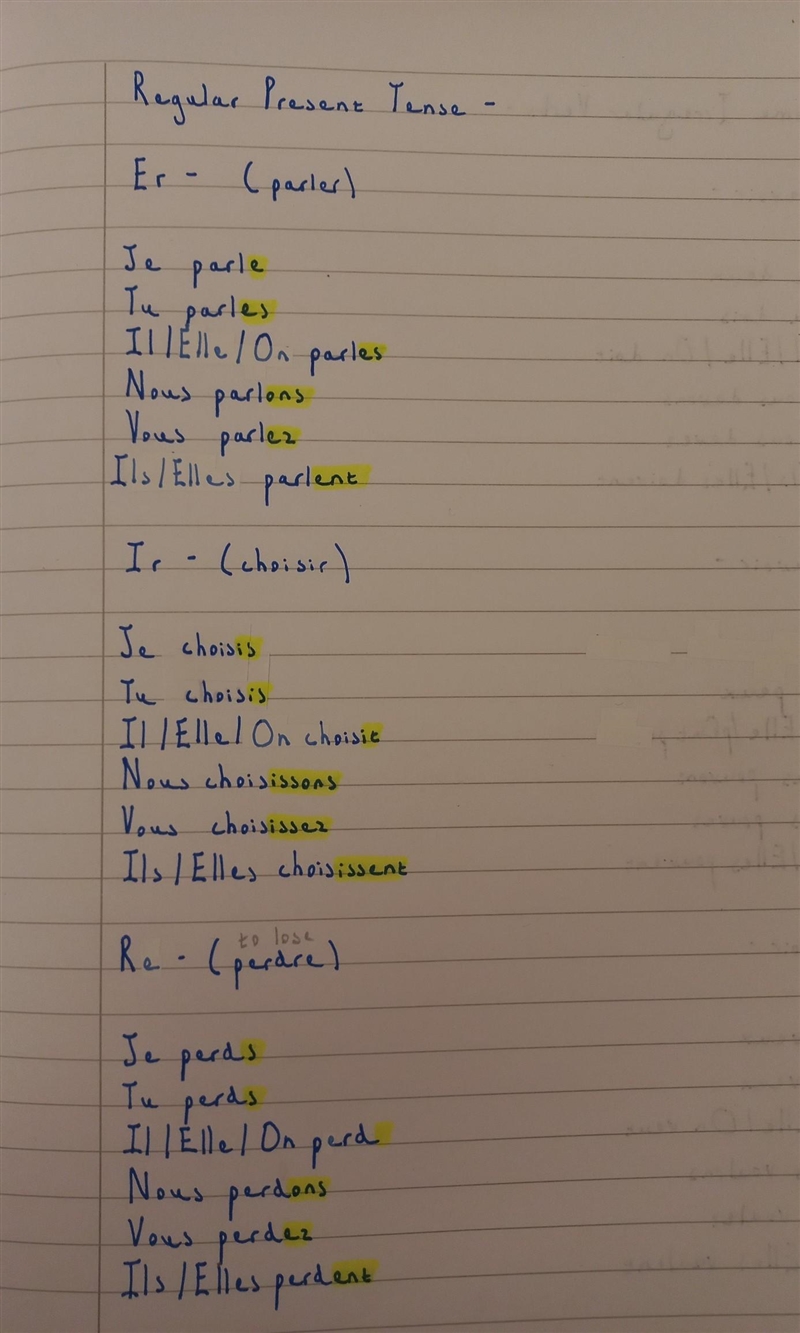 Regular Present Tense -
Er - (parler)
Je parle
Tu parles
Il/Elle/On parles
Nous parlons
Vous parlez
Ils/Elles parlent
Ir - (choisir)
Je choisis
Tu choisis
Il/Elle/On choisit
Nous choisissons
Vous choisissez
Ils/Elles choisissent
to lose
Re - (perdre)
Je perds
Tu perds
Il/Elle/On perd
Nous perdons
Vous perdez
Ils/Elles perdent